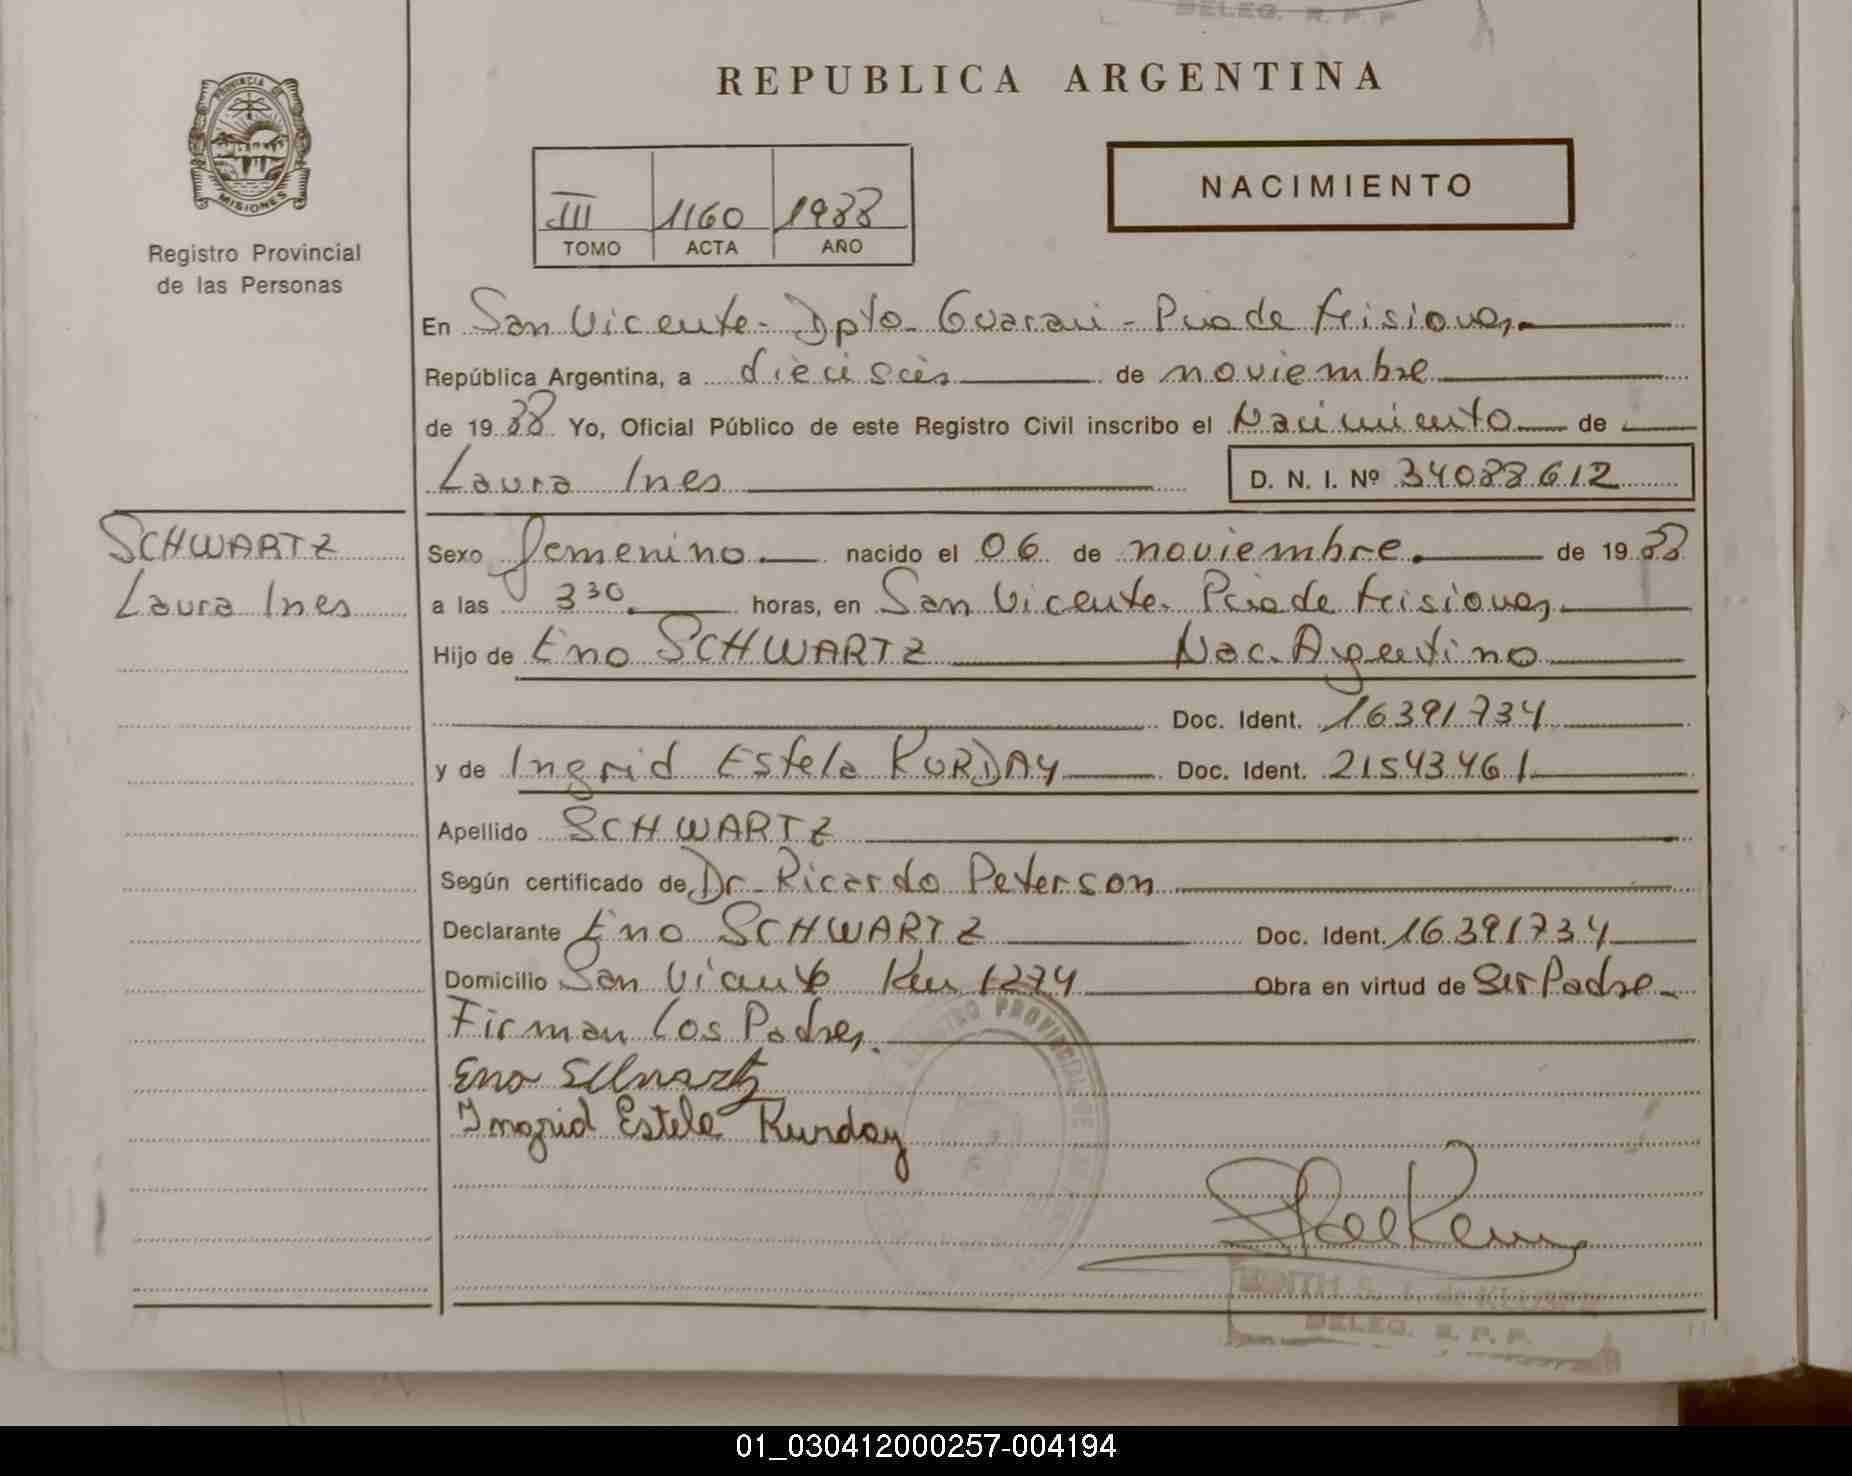 DELEG. R. P. P
REPUBLICA ARGENTINA
PROVINCIA DE
MISIONES
Registro Provincial
de las Personas
III 1160 1988
TOMO ACTA AÑO
NACIMIENTO
En San Vicente - Dpto Guarani - Pcia de Misiones
República Argentina, a dieciseis de noviembre
de 1988 Yo, Oficial Público de este Registro Civil inscribo el Nacimiento de
Laura Ines D. N. I. Nº 34088612
SCHWARTZ
Laura Ines
Sexo femenino nacido el 06 de noviembre de 1988
a las 3 30 horas, en San Vicente - Pcia de Misiones
Hijo de Eno SCHWARTZ Nac. Argentino
Doc. Ident. 16391734
y de Ingrid Estela KURDAY Doc. Ident. 21543461
Apellido SCHWARTZ
Según certificado de Dr. Ricardo Peterson
Declarante Eno SCHWARTZ Doc. Ident. 16391734
Domicilio San Vicente Km 1274 Obra en virtud de Ser Padre
Firman los Padres.
Eno Schwartz
Ingrid Estela Kurday
REGISTRO PROVINCIAL DE
DELEG. R. P. P.
01_030412000257-004194